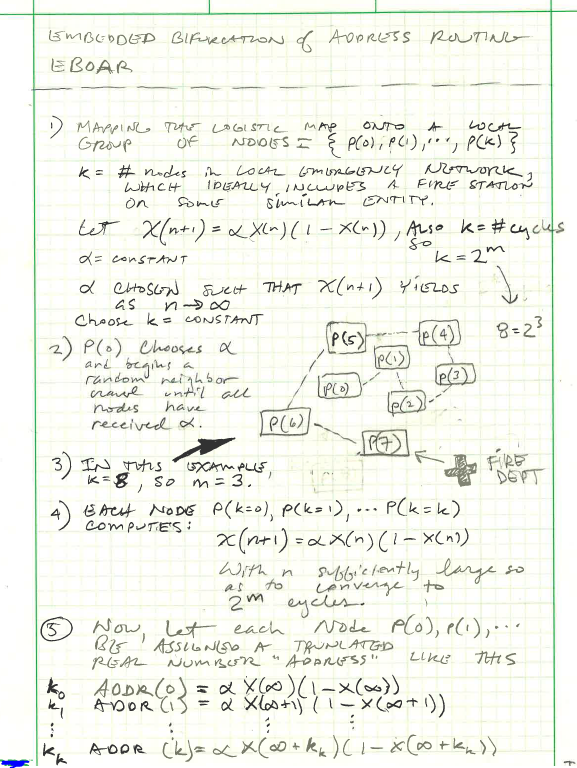 EMBEDDED BIFURCATION of ADDRESS ROUTING
EBOAR
1) MAPPING THE LOGISTIC MAP ONTO A LOCAL
GROUP OF NODES = { P(0), P(1), ..., P(k) }
K = # nodes in LOCAL EMERGENCY NETWORK,
WHICH IDEALLY INCLUDES A FIRE STATION
OR SOME SIMILAR ENTITY.
Let X(n+1) = α X(n) (1 - X(n)), Also k = # cycles
so
α = CONSTANT
k = 2^m
α CHOSEN SUCH THAT X(n+1) YIELDS
AS n → ∞
Choose k = CONSTANT
8 = 2^3
2) P(0) Chooses α
and begins a
random neighbor
crawl until all
nodes have
received α.
P(5)
P(4)
P(1)
P(0)
P(3)
P(2)
P(6)
P(7)
FIRE
DEPT
3) IN THIS EXAMPLE,
k=8, so m = 3.
4) EACH NODE P(k=0), P(k=1), ... P(k=k)
COMPUTES:
X(n+1) = α X(n) (1 - X(n))
With n sufficiently large so
as to converge to
2^m cycles.
5) Now, let each Node P(0), P(1), ...
BE ASSIGNED A TRUNLATED
REAL NUMBER "ADDRESS" LIKE THIS
k₀ ADDR(0) = α X(∞) (1 - X(∞))
k₁ ADDR(1) = α X(∞+1) (1 - X(∞+1))
⋮ ⋮ ⋮ ⋮
kₖ ADDR (k) = α X(∞ + kₖ) (1 - X(∞ + kₖ))